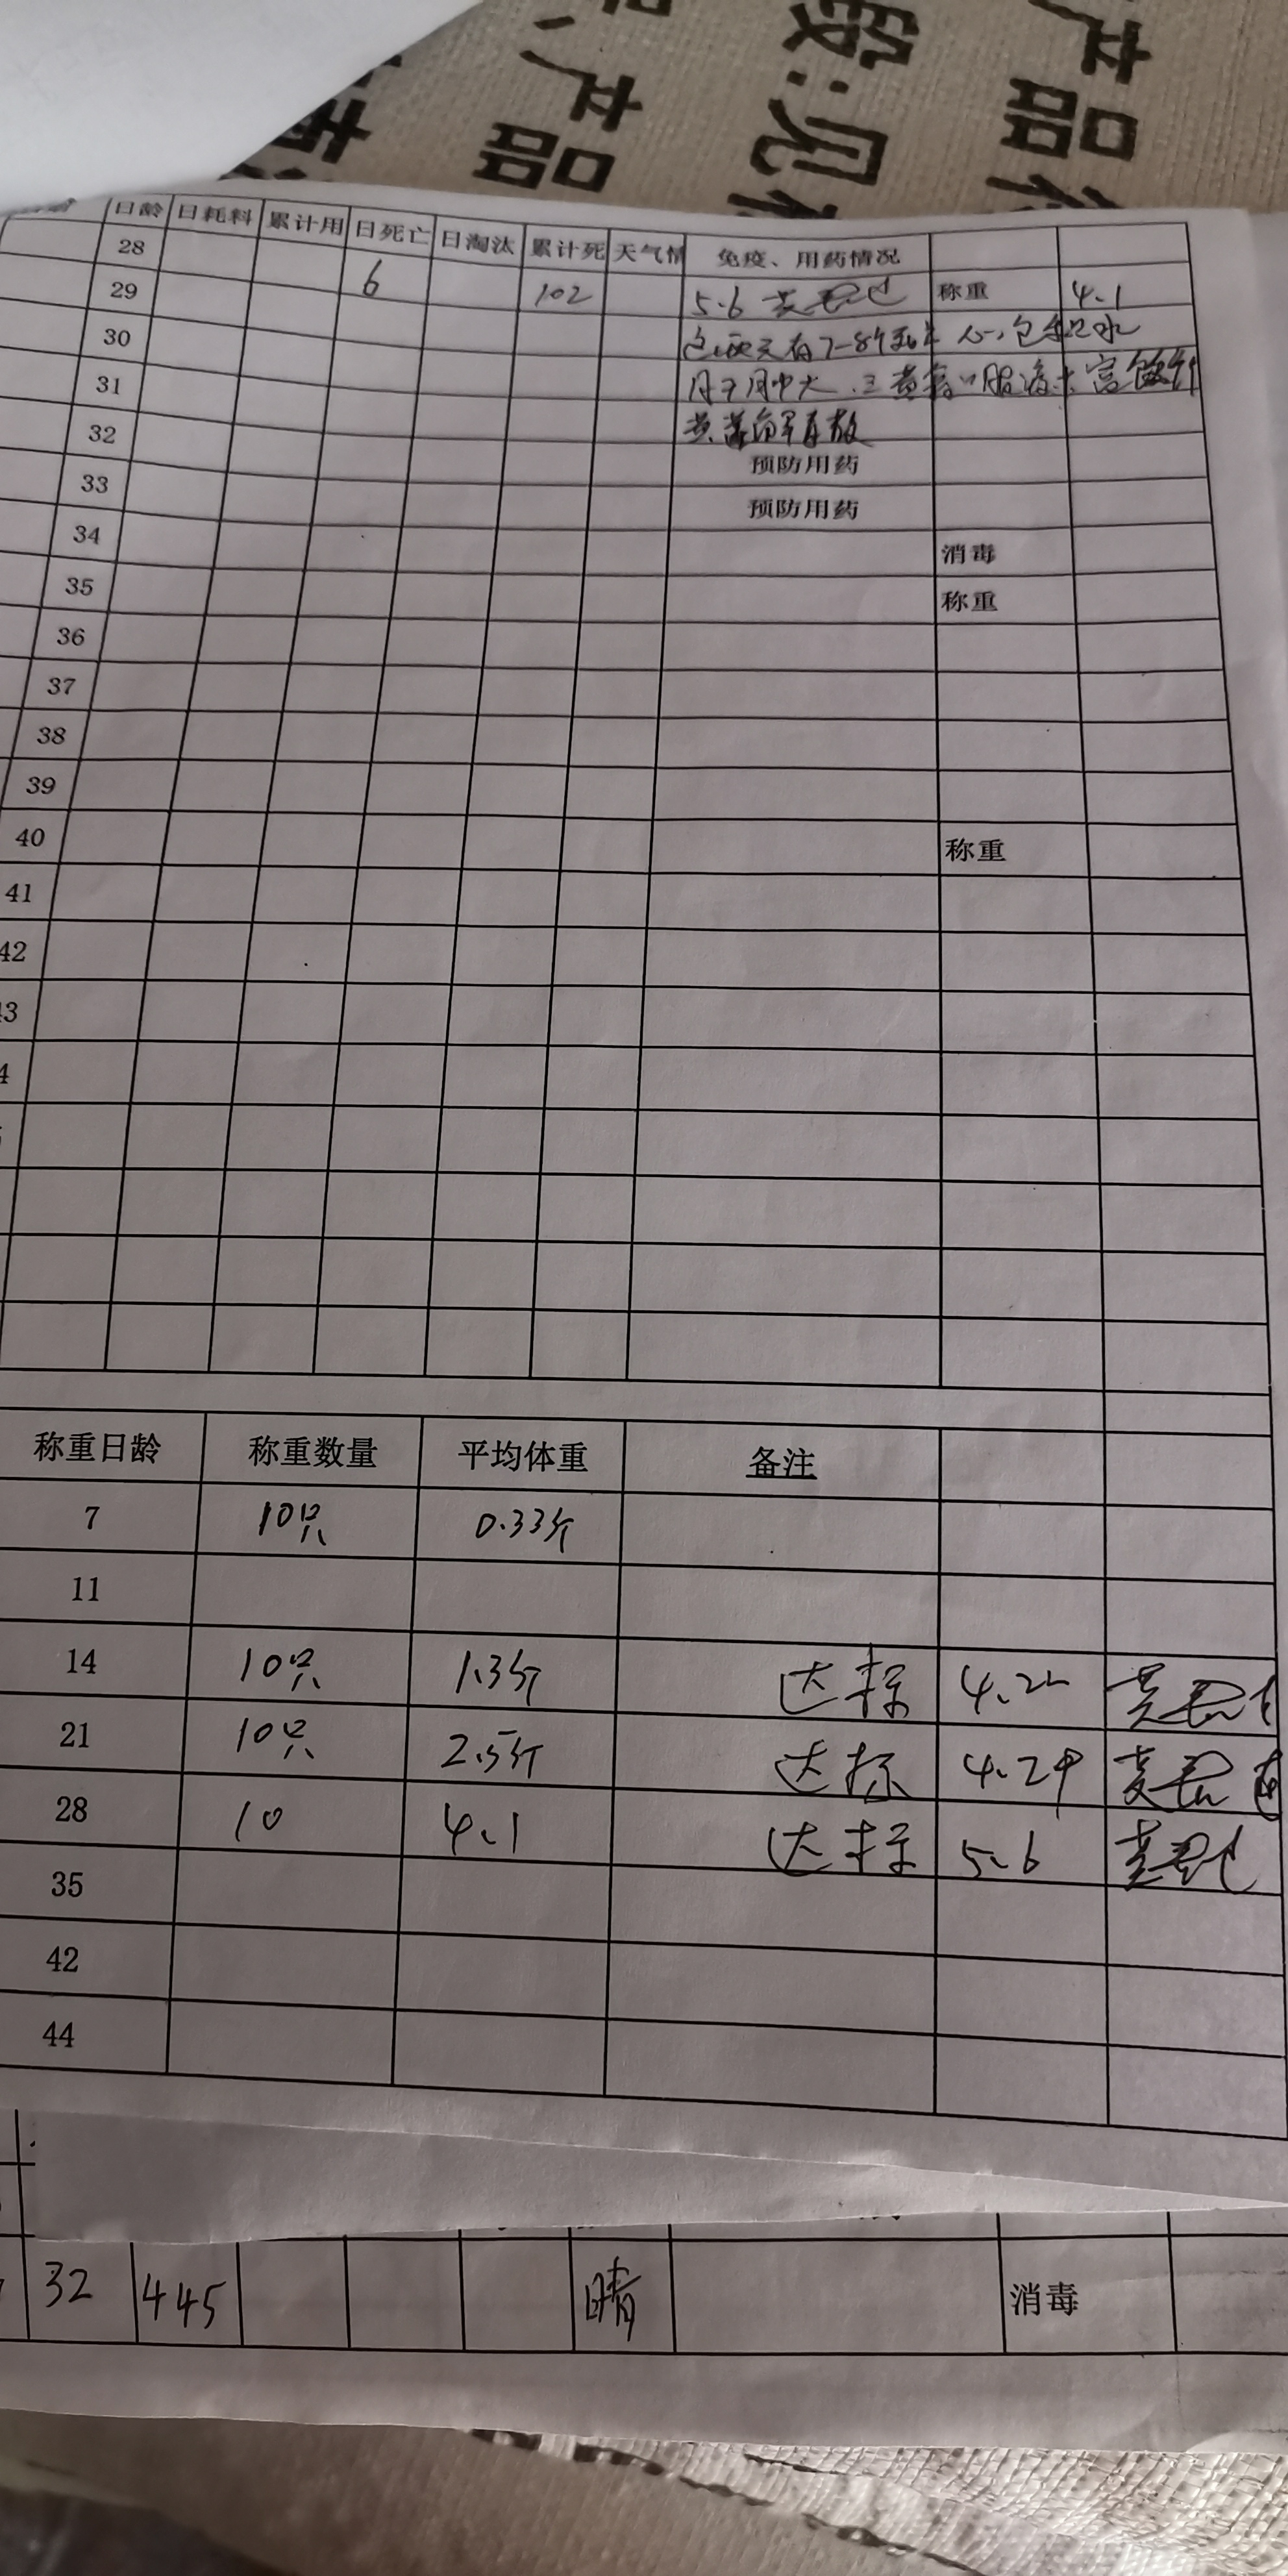 产品
产品
段:见
日龄 日耗料 累计用 日死亡 日淘汰 累计死 天气情 免疫、用药情况
28 6 102 5.6 称重 4.1
29 这两天有7-8个死淘 心包积水
30 肝肿大.三黄 口服液
31 黄 解毒散
32 预防用药
33 预防用药
34 消毒
35 称重
36
37
38
39
40 称重
41
42
称重日龄 称重数量 平均体重 备注
7 10只 0.33斤
11
14 10只 1.3斤 达标 4.22
21 10只 2.5斤 达标 4.29
28 10 4.1 达标 5.6
35
42
44
32 445 晴 消毒